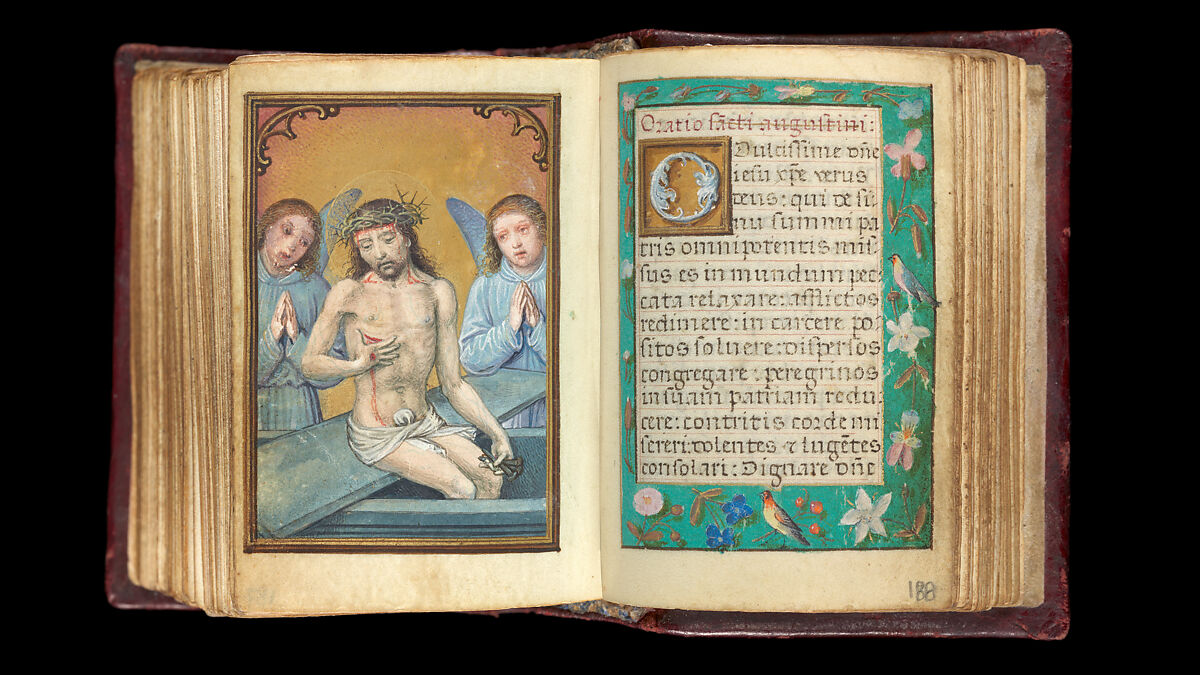 Oratio sācti augustini:
O Dulcissime dñe
iesu xp̄e verus
deus: qui de si
nu summi pa
tris omnipotentis mis
sus es in mundum pec
cata relaxare: afflictos
redimere: in carcere po
sitos soluere: dispersos
congregare: peregrinos
in suam patriam redu
cere: contritis corde mi
sereri: dolentes & lugētes
consolari: Dignare dñe
188